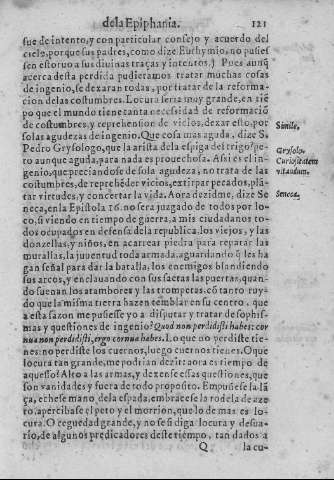 dela Epiphania. 121
fue de intento, y con particular consejo y acuerdo del
cielo, porque sus padres, como dize Euthymio, no pusies
sen estoruo a sus diuinas traças y intentos.) Pues aunq̃
acerca desta perdida pudieramos tratar muchas cosas
de ingenio, se dexaran todas, por tratar de la reforma-
cion de las costumbres. Locura seria muy grande, en tiẽ
po que el mundo tiene tanta necessidad de reformaciõ
de costumbres, y reprehension de vicios, dexar esto, por
solas agudezas de ingenio. Que cosa mas aguda, dize S.
Pedro Grysologo, que la arista dela espiga del trigo? pe-
ro aunque aguda, para nada es prouechosa. Assi es el in-
genio, que preciandose de sola agudeza, no trata de las
costumbres, de reprehẽder vicios, extirpar pecados, plã-
tar virtudes, y concertar la vida. Aora dezidme, dize Se
neca, en la Epistola 16. no sera juzgado de todos por lo-
co, si viendo en tiempo de guerra, a mis ciudadanos to-
dos ocupados en defensa dela republica, los viejos, y las
donzellas, y niños, en acarrear piedra para reparar las
murallas, la juuentud toda armada, aguardando q̃ les ha
gan señal para dar la batalla, los enemigos blandiendo
sus arcos, y enclauando con sus saetas las puertas, quan-
do suenan los atambores y las trompetas, cõ tanto ruy-
do que la misma tierra hazen temblar en su centro, que
a esta sazon me pusiesse yo a disputar y tratar de sophis-
mas y questiones de ingenio? Quod non perdidisti habes: cor
nua non perdidisti, ergo cornua habes. Lo que no perdiste tie-
nes: no perdiste los cuernos, luego cuernos tienes. O que
locura tan grande, me podrian dezir: aora es tiempo de
aquesso? Alto a las armas, y dexense essas questiones, que
son vanidades y fuera de todo proposito. Empuñese la lã
ça, echese mano dela espada, embracese la rodela de aze
ro, apercibase el peto y el morrion, que lo de mas es lo-
cura. O ceguedad grande, y no se si diga locura y desua-
rio, de algunos predicadores deste tiempo, tan dados a
Q la cu-
Simile.
Grysolo.
Curiositatem
vitandum.
Seneca.